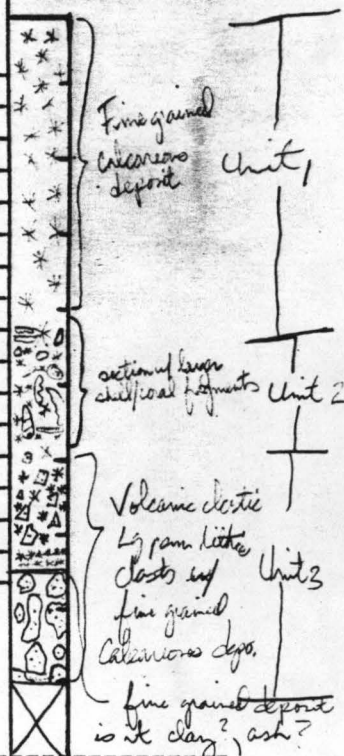 Fine grained
calcareous
deposit
Unit 1
section of larger
shell/coral fragments
Unit 2
Volcanic clastic
Lg pum lithic
clasts w/
fine grained
Calcareous depo.
Unit 3
fine grained deposit
is it clay? ash?